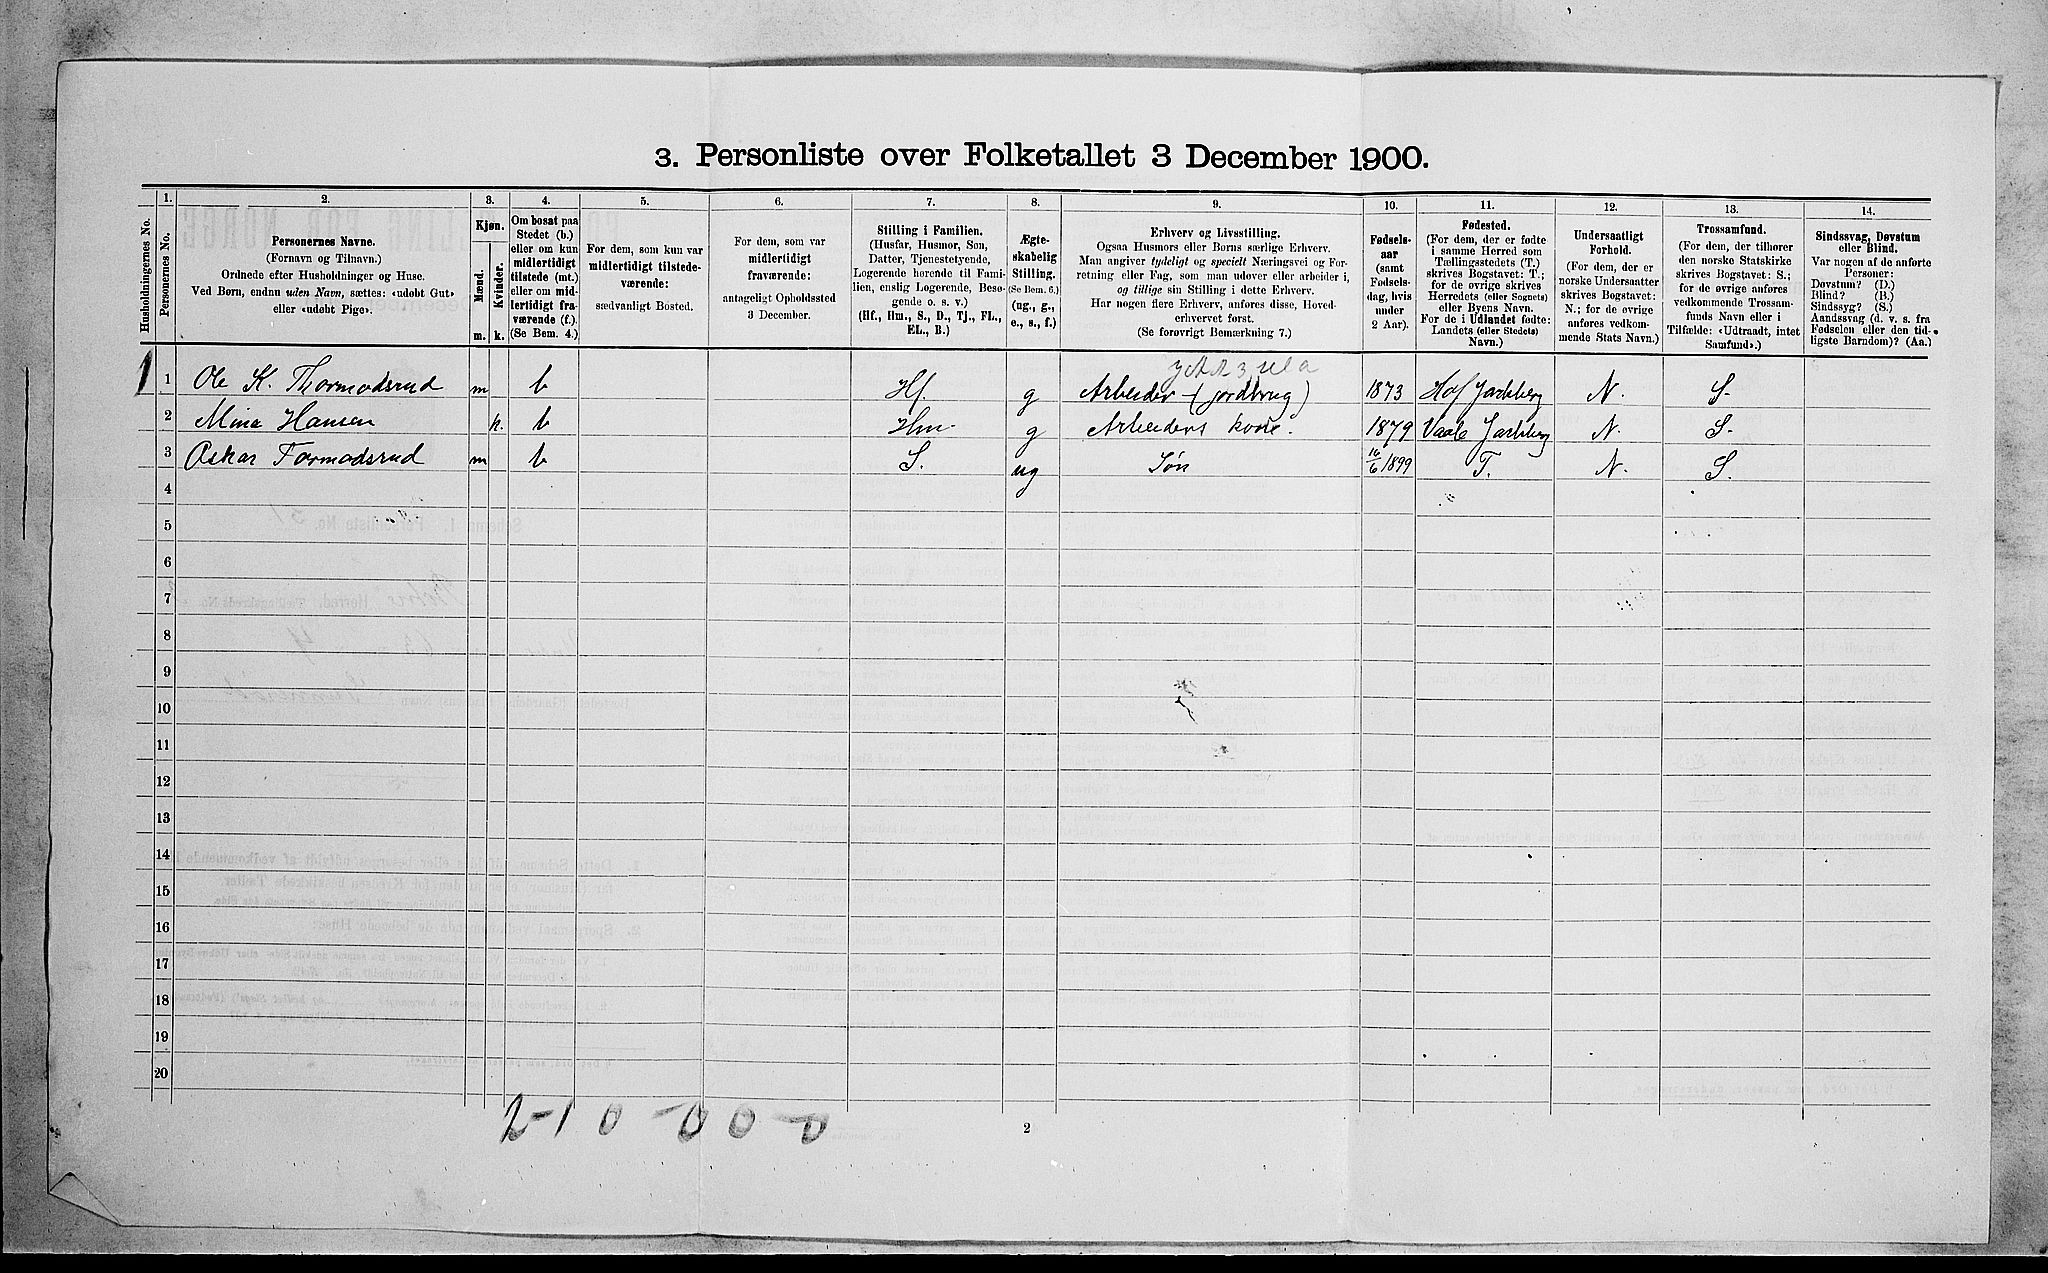 3. Personliste over Folketallet 3 December 1900.
Husholdningernes No.
1.
Personernes No.
2.
Personernes Navne.
(Fornavn og Tilnavn.)
Ordnede efter Husholdninger og Huse.
Ved Børn, endnu uden Navn, sættes: «udøbt Gut»
eller «udøbt Pige».
3.
Kjøn.
Mænd.
Kvinder.
m. k.
4.
Om bosat paa
Stedet (b.)
eller om kun
midlertidigt
tilstede (mt.)
eller om mid-
lertidigt fra-
værende (f.)
(Se Bem. 4.)
5.
For dem, som kun var
midlertidigt tilstede-
værende:
sædvanligt Bosted.
6.
For dem, som var
midlertidigt
fraværende:
antageligt Opholdssted
3 December.
7.
Stilling i Familien.
(Husfar, Husmor, Søn,
Datter, Tjenestetyende,
Logerende hørende til Fami-
lien, enslig Logerende, Besø-
gende o. s. v.)
(Hf., Hm., S., D., Tj., FL.,
EL., B.)
8.
Ægte-
skabelig
Stilling.
(Se Bem. 6.)
(ug., g.,
e., s., f.)
9.
Erhverv og Livsstilling.
Ogsaa Husmors eller Børns særlige Erhverv.
Man angiver tydeligt og specielt Næringsvei og For-
retning eller Fag, som man udøver eller arbeider i,
og tillige sin Stilling i dette Erhverv.
Har nogen flere Erhverv, anføres disse, Hoved-
erhvervet først.
(Se forøvrigt Bemærkning 7.)
10.
Fødsels-
aar
(samt
Fødsels-
dag, hvis
under
2 Aar).
11.
Fødested.
(For dem, der er fødte
i samme Herred som
Tællingsstedets (T.)
skrives Bogstavet: T.;
for de øvrige skrives
Herredets (eller Sognets)
eller Byens Navn.
For de i Udlandet fødte:
Landets (eller Stedets)
Navn.)
12.
Undersaatligt
Forhold.
(For dem, der er
norske Undersaatter
skrives Bogstavet:
N.; for de øvrige
anføres vedkom-
mende Stats Navn.)
13.
Trossamfund.
(For dem, der tilhører
den norske Statskirke
skrives Bogstavet: S.;
for de øvrige anføres
vedkommende Trossam-
funds Navn eller i
Tilfælde: «Udtraadt, intet
Samfund».)
14.
Sindssvag, Døvstum
eller Blind.
Var nogen af de anførte
Personer:
Døvstum? (D.)
Blind? (B.)
Sindssyg? (S.)
Aandssvag (d. v. s. fra
Fødselen eller den tid-
ligste Barndom)? (Aa.)
1 1 Ole K. Thormodsrud m b Hf. g Arbeider (jordbrug) 1873 Hof Jarlsberg N. S.
2 Mina Hansen k. b Hm g Arbeiders kone. 1879 Vaale Jarlsberg N. S.
3 Oskar Tormodsrud m b S. ug Søn 16/6 1899 T. N. S.
4
5
6
7
8
9
10
11
12
13
14
15
16
17
18
19
20
2-1 0 - 0 0 - 0
2